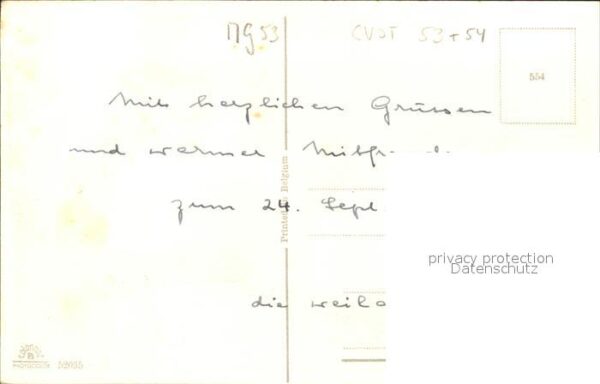 MG53
CVDT 53+54
554
Mit herzlichen Grüssen
und warmer
zum 24. Sept.
die
Printed in Belgium
privacy protection
Datenschutz
52035